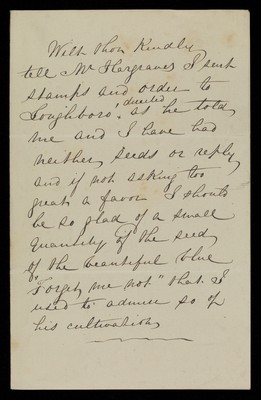 Wilt thou Kindly
tell Mr Hargraves I sent
stamps and order to
Loughboro' directed as he told
me and I have had
neither seeds or reply
and if not asking too
great a favor I should
be so glad of a small
quantity of the seed
of the beautiful blue
"Forget me not" that I
used to admire so of
his cultivation